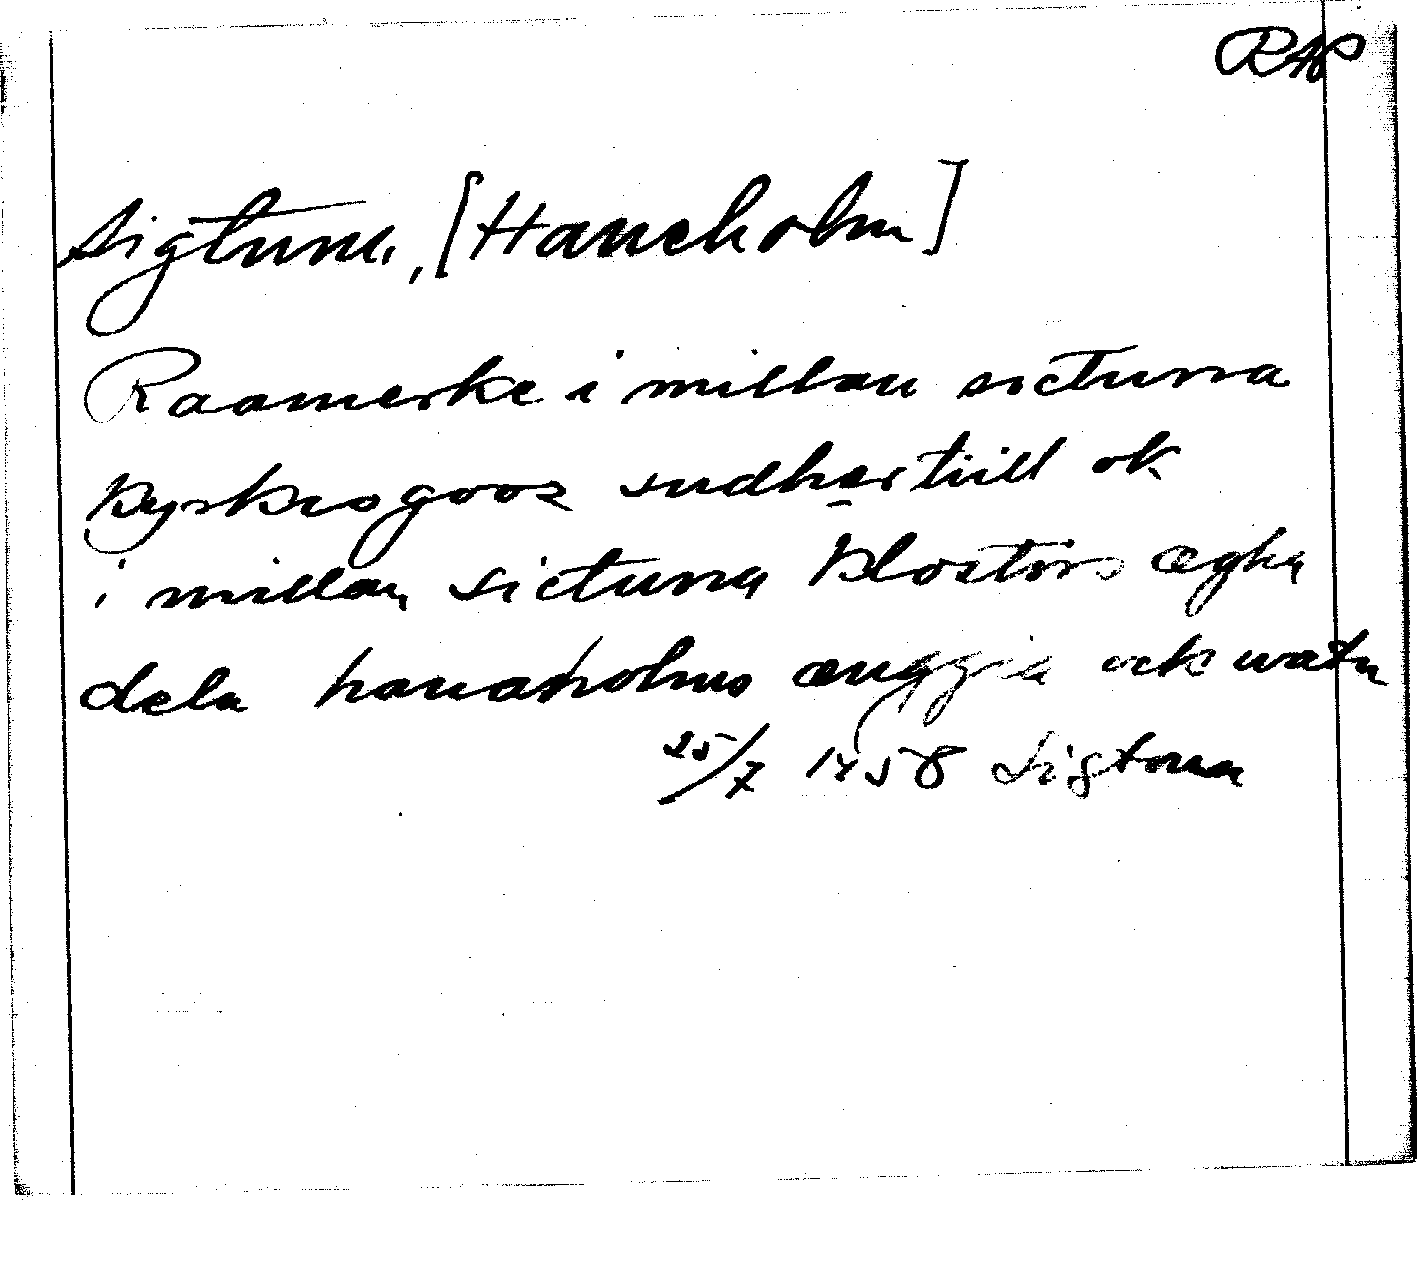 RAP
Sigtuna, [Haneholm]
Raamerke i millan sictuna
kyrkiogooz sudhertiill ok
i millan sictuna klostirs ægha
dela hanaholms ænggia ock watn
25/7 1458 Sigtuna